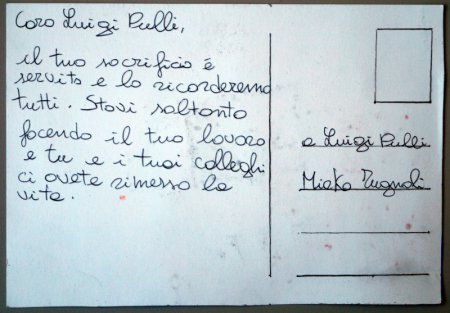 Caro Luigi Pulli,
il tuo sacrificio é
servito e lo ricorderemo
tutti. Stavi soltanto
facendo il tuo lavoro
e tu e i tuoi colleghi
ci avete rimesso la
vita.
a Luigi Pulli
Mirko Zugnoli